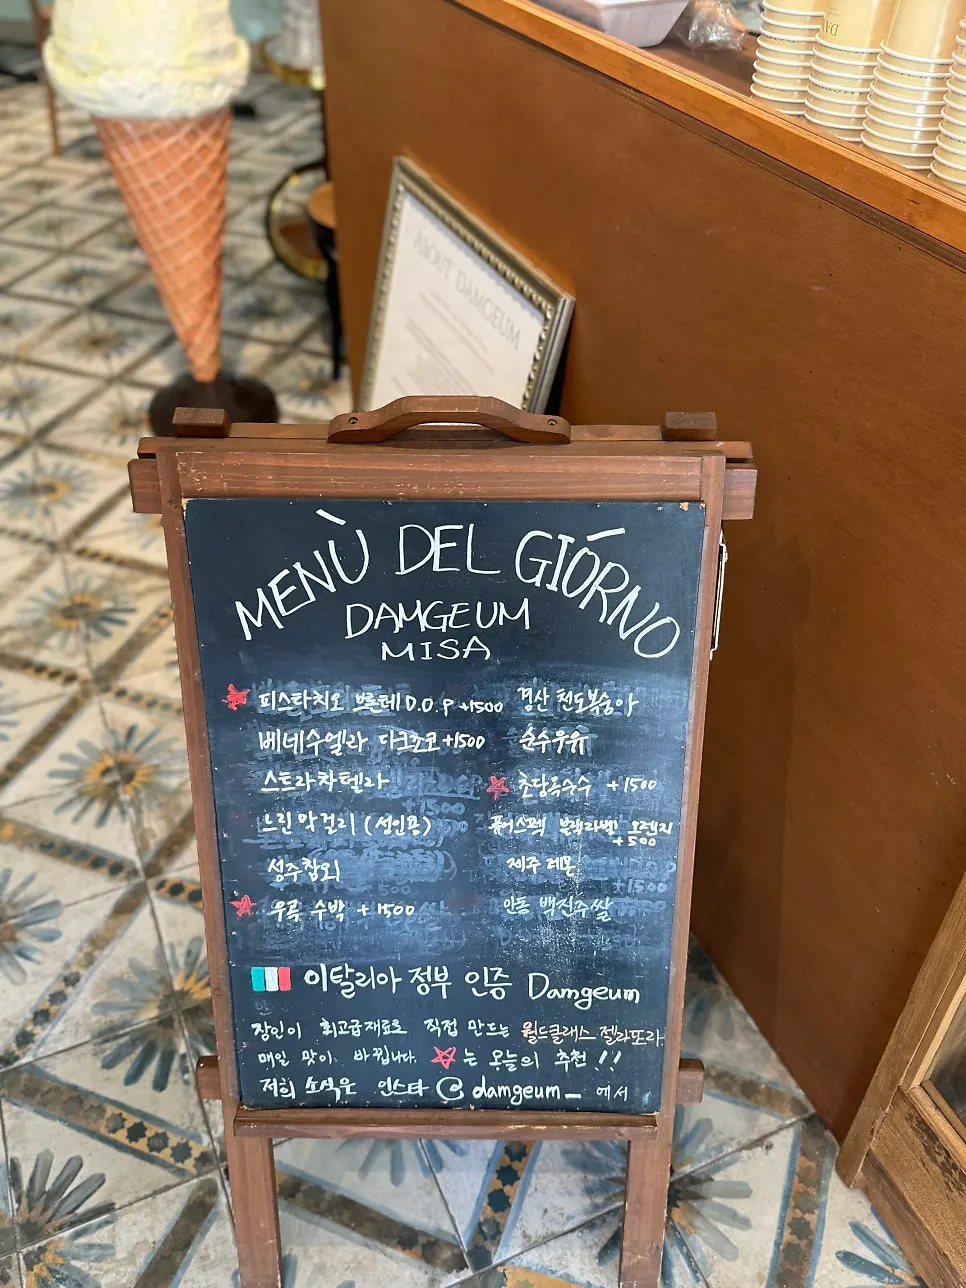 ABOUT DAMGEUM
MENÙ DEL GIÓRNO
DAMGEUM
MISA
피스타치오 브론테 D.O.P +1500
베네수엘라 다크초코 +1500
스트라차텔라
느린막걸리 (성인용)
성주참외
우곡 수박 + 1500
경산 천도복숭아
순수우유
초당옥수수 +1500
퓨어스펙 블랙라벨 오렌지
+500
제주 레몬
안동 백진주쌀
이탈리아 정부 인증 Damgeum
장인이 최고급재료로 직접 만드는 월드클래스 젤라또라
매일 맛이 바뀝니다. ☆는 오늘의 추천!!
저희 소식은 인스타 @damgeum_ 에서